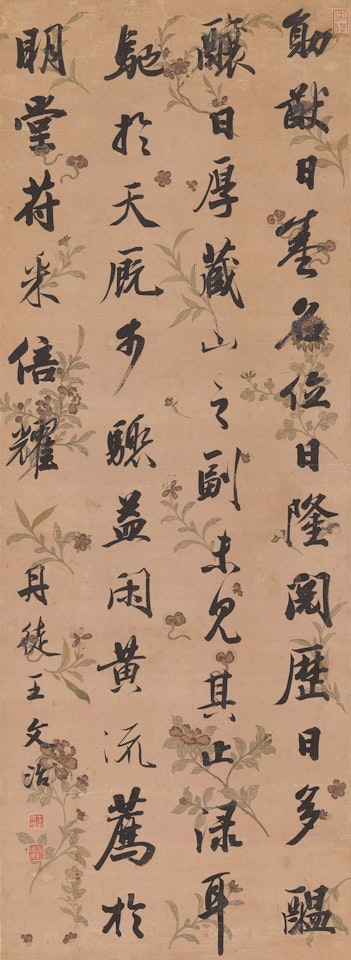 勛猷日盛名位日隆閱歷日多醞
釀日厚藏山之副未見其止淥耳
馳於天厩步驟益閑黃流薦於
明堂符采倍耀 丹徒王文治